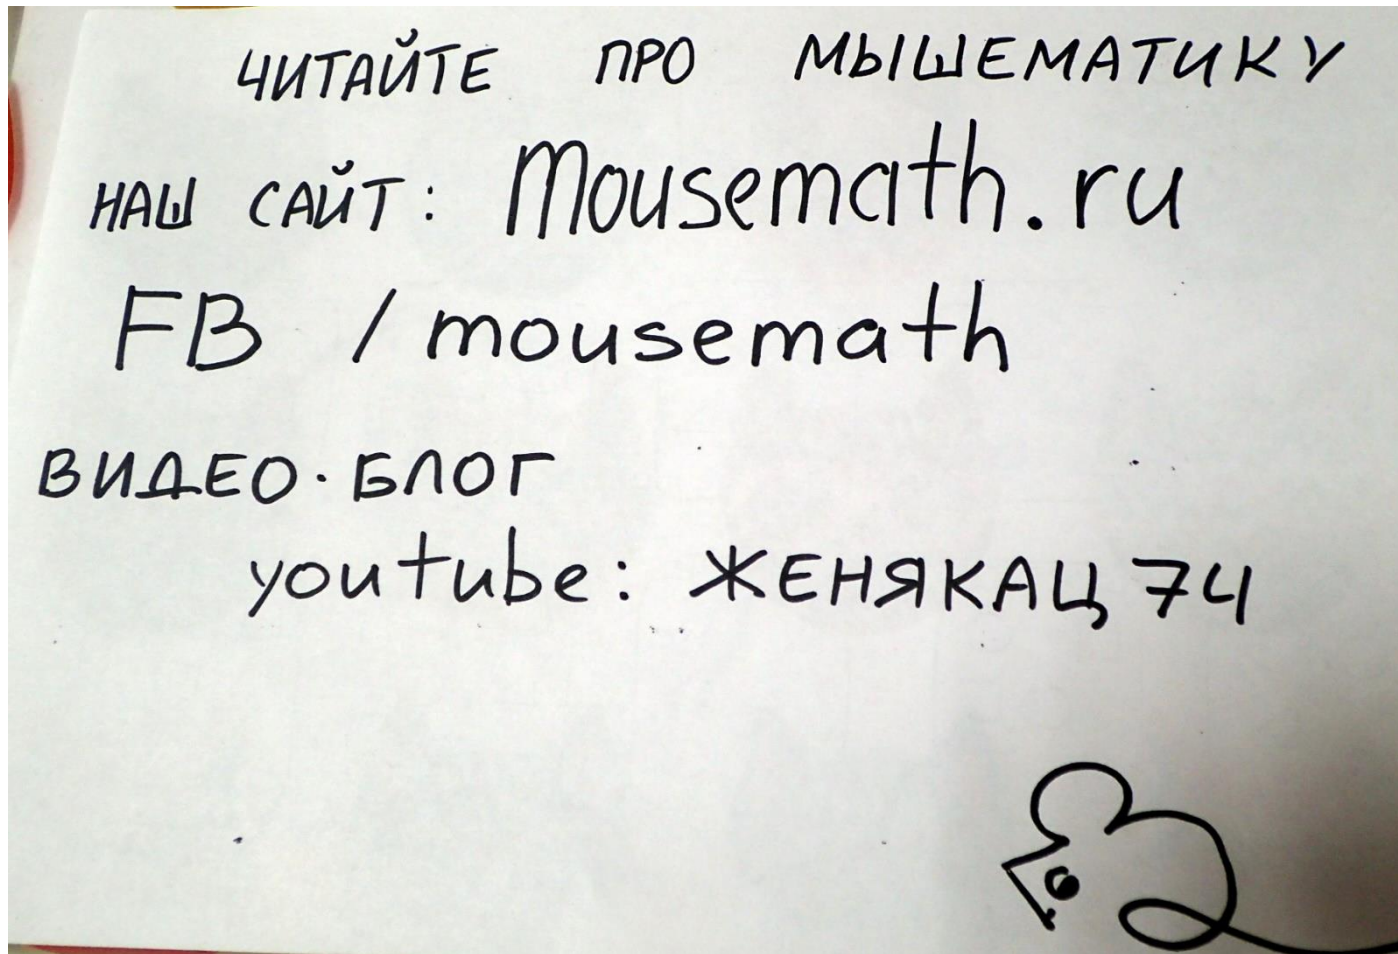 ЧИТАЙТЕ ПРО МЫШЕМАТИКУ
НАШ САЙТ: Mousemath.ru
FB /mousemath
ВИДЕО·БЛОГ
youtube: ЖЕНЯКАЦ 74